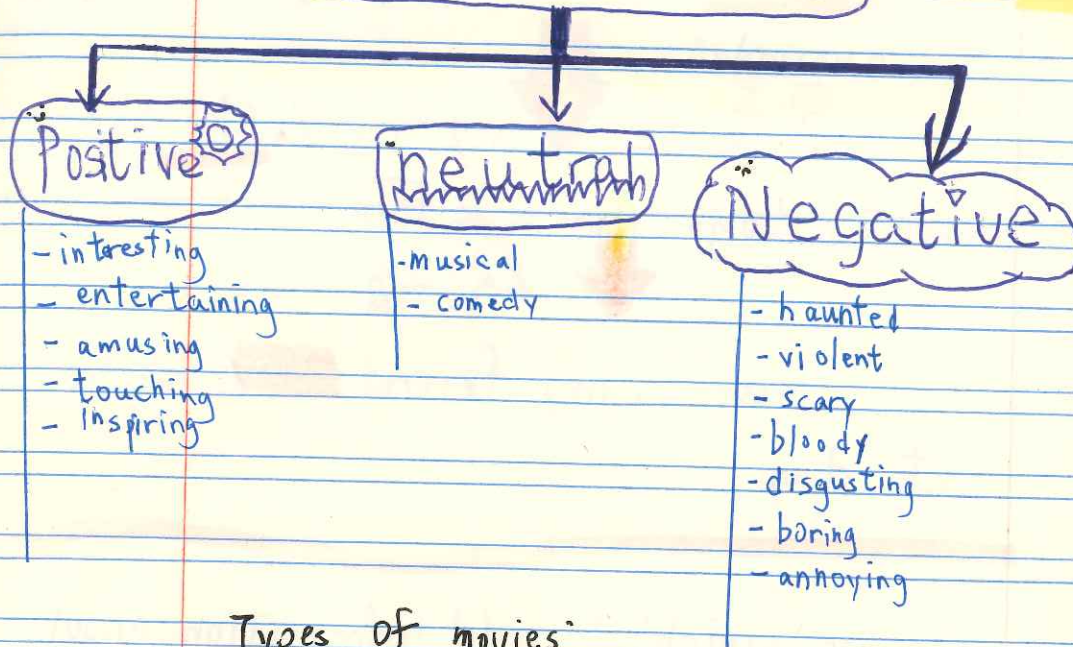 Positive
- interesting
- entertaining
- amusing
- touching
- inspiring
neutral
- musical
- comedy
Negative
- haunted
- violent
- scary
- bloody
- disgusting
- boring
- annoying
Types of movies